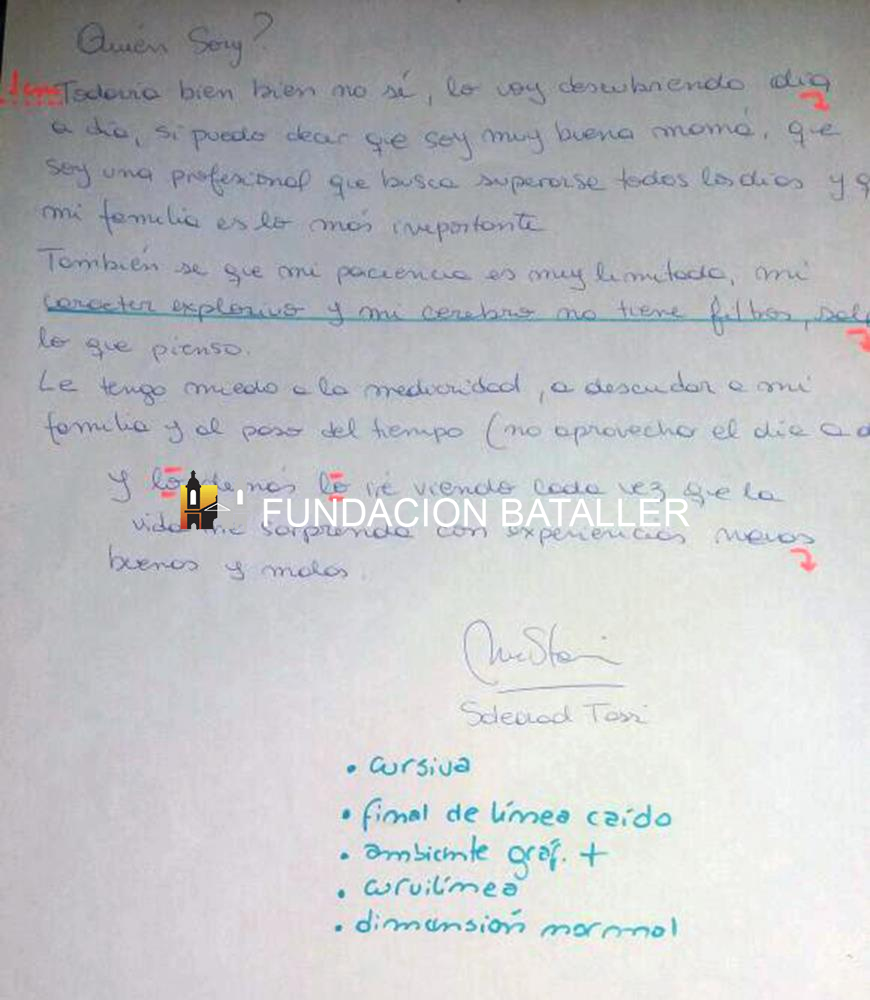 Quién Soy?
1cm Todavía bien bien no sé, lo voy descubriendo día
a día, si puedo decir que soy muy buena mamá, que
soy una profesional que busca superarse todos los días y q
mi familia es lo más importante
También se que mi paciencia es muy limitada, mi
caracter explosivo y mi cerebro no tiene filtros, sale
lo que pienso.
Le tengo miedo a la mediocridad, a descuidar a mi
familia y al paso del tiempo (no aprovechar el día a d
y lo demás lo iré viendo cada vez que la
FUNDACION BATALLER
vida me sorprenda con experiencias nuevas
buenas y malas.
Soledad
• cursiva
• final de línea caído
• ambiente gráf. +
• curvilínea
• dimensión normal